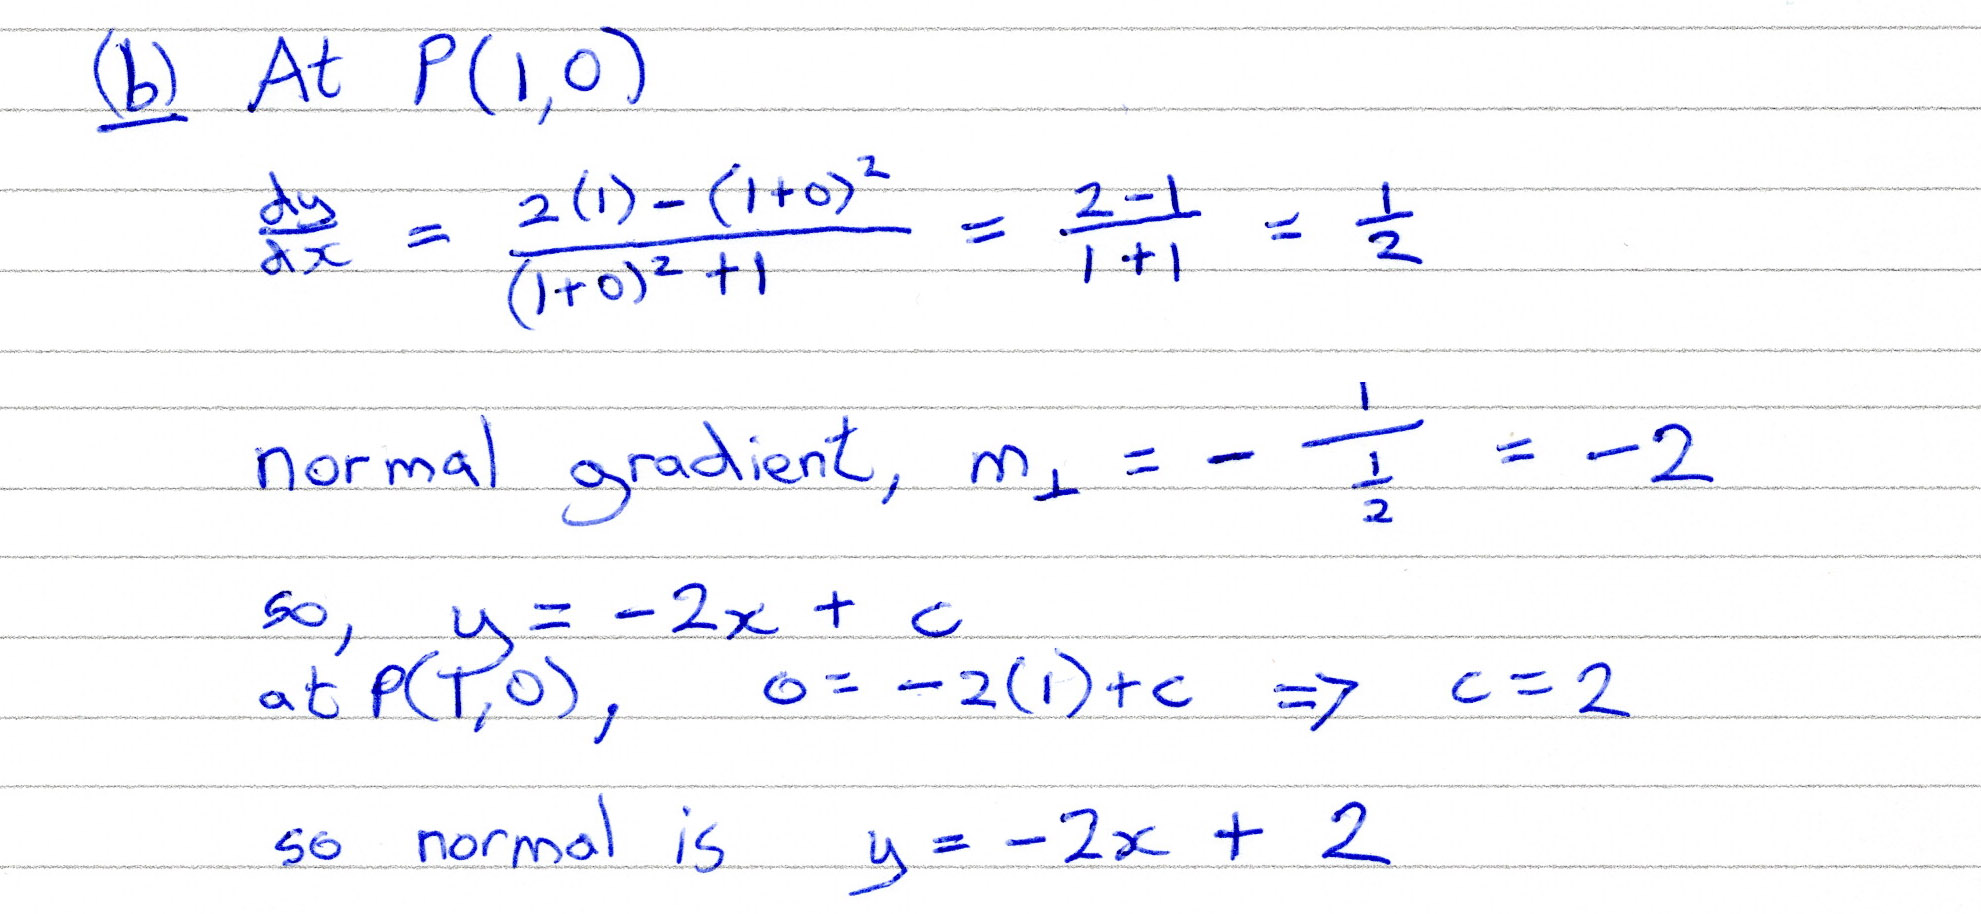 (b) At P(1,0)
dy/dx = (2(1)-(1+0)²)/((1+0)²+1) = (2-1)/(1+1) = 1/2
normal gradient, m⊥ = - 1/(1/2) = -2
so, y = -2x + c
at P(1,0), 0 = -2(1)+c => c=2
so normal is y = -2x + 2